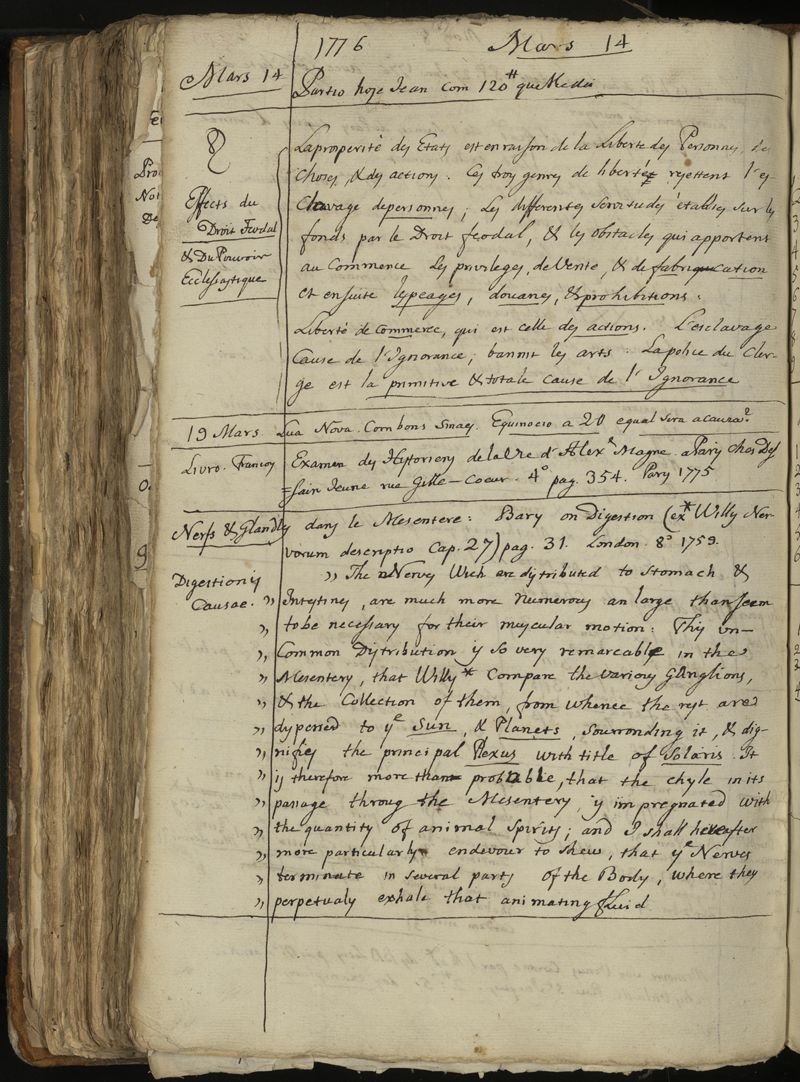 1776 Mars 14
Mars 14 Partio hoje Jean com 120# que lhe dei
Effects du
Droit Feodal
& Du Pouvoir
Ecclesiastique
La prosperité des Etats est en raison de la Liberte des Personnes, des
choses, & des actions. Ces troys genres de liberté rejettent l'es-
clavage des personnes; Les differentes servitudes etablies sur les
fonds par le Droit feodal, & les obstacles qui apportent
au Commerce les privileges, de Vente, & de fabriquication
et ensuite les peages, douanes, & prohibitions.
Liberté de Commerce, qui est celle des actions. L'esclavage
Cause de l'Ignorance; bannit les arts: La police du Cler-
ge est la primitive & totale cause de l'Ignorance
19 Mars Lua Nova. Com bons Sinaes. Equinocio a 20 equal sera a cauza?
Livro. Francoys
Examen des Hystoriens de la Vie d'Alexr Magne. a Parys Ches Des
=sain Jeune rue Gille-Coeur. 4º pag. 354. Parys 1775
Nerfs & Glandes dans le Mesentere: Bary on Digestion (ex* Willys Ner-
vorum descriptio Cap. 27) pag. 31. London. 8º 1759.
Digestionis
Causae.
„ The Nerves Wich are dystributed to Stomach &
„ Intestines, are much more Numerous an large than seem
„ to be necessary for their muscular motion: This un-
„ Common Dystribution ys so very remarcable in the
„ Mesentery, that Willys* Compare the various Ganglions,
„ & the Collection of them, from whence the rest are
„ dyspersed to ye Sun, & Planets, sourronding it, & dig-
„ nifies the principal Plexus with title of Solaris. It
„ is therefore more than probable, that the chyle in its
„ passage throug the Mesentery, ys impregnated with
„ the quantity of animal Spirits; and I shall hereafter
„ more particularly endevour to shew, that ye Nerves
„ terminate in several parts of the Body, where they
„ perpetualy exhale that animating fluid